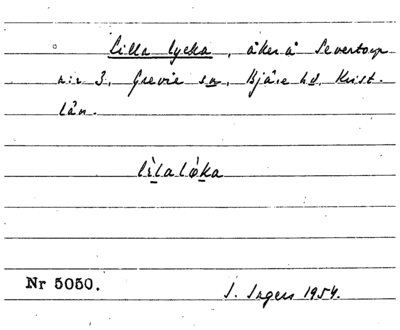 Lilla lycka, åker å Severtorp
n:r 3, Grevie sn, Bjäre hd, Krist.
län.
lìlalø̀ka
Nr 5050.
I. Ingers 1954.